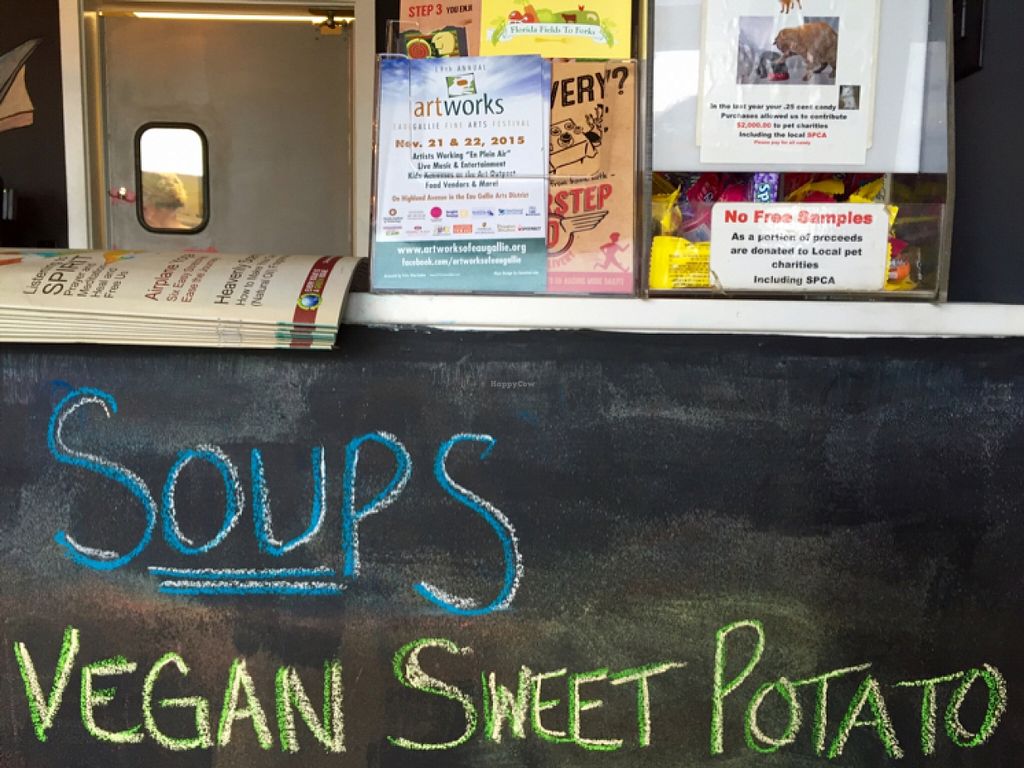 STEP 3 YOU ENJ
Florida Fields To Forks
19th ANNUAL
artworks
EAU GALLIE FINE ARTS FESTIVAL
Nov. 21 & 22, 2015
Artists Working "En Plein Air"
Live Music & Entertainment
Kids Activities at the Art Outpost
Food Vendors & More!
On Highland Avenue in the Eau Gallie Arts District
www.artworksofeaugallie.org
facebook.com/artworksofeaugallie
VERY?
STEP
In the last year your .25 cent candy
Purchases allowed us to contribute
$2,000.00 to pet charities
Including the local SPCA
Please pay for all candy
No Free Samples
As a portion of proceeds
are donated to Local pet
charities
Including SPCA
Free Us
Airplane
Heavenly
HappyCow
SOUPS
VEGAN SWEET POTATO